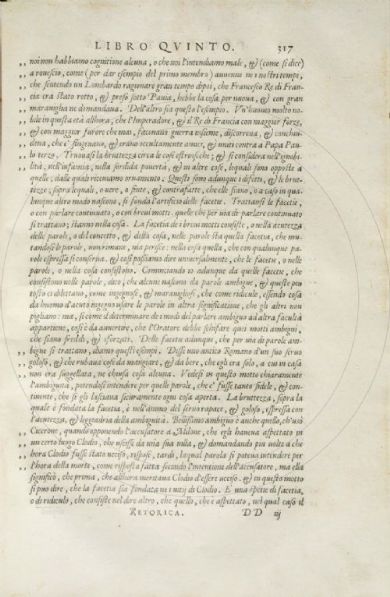 LIBRO QVINTO. 317
,, noi non habbiamo cognitione alcuna, o che no l'intendiamo male, & (come si dice)
,, a rouescio, come (per dar esempio del primo membro) auuenne in i nostri tempi,
che sentendo un Lombardo ragionare gran tempo dipoi, che Francesco Re di Fran-
cia era stato rotto, & preso sotto Pauia, hebbe la cosa per nuoua, & con gran
marauiglia ne dimandaua. Dell'altro sia questo l'esempio. Vn'huomo molto no-
bile in questa età allhora, che l'Imperadore, & il Re di Francia con maggior forze,
& con maggior furore che mai, faceuansi guerra insieme, discorreua, & conchiu-
deua, che s'fingeuano, & erano occultamente amici, & uniti contra a Papa Pau-
lo terzo. Trouasi la bruttezza circa le cose estrinseche; & si considera nell'ignobi-
lità, nell'infamia, nella sordida pouertà, & in altre cose, lequali sono opposte a
quelle; dalle quali riceuemo ornamento. Questi sono adunque i difetti, & le brut-
tezze; sopra lequali, o uere, o finte, & contrafatte, che elle siano, o a caso in qua-
lunque altro modo nascono, si fonda l'artificio delle facetie. Trattansi le facetie,
o con parlare continuato, o con breui motti. quelle che per uia di parlare continuato
si trattano; stanno nella cosa. La facetia de i breui motti consiste, o nella acutezza
delle parole, o del concetto, & della cosa, nelle parole sta quella facetia, che mu-
tandosi le parole, non rimane, ma perisce: nella cosa quella, che con qualunque pa-
role espressa si conserua. & cosi possiamo dire uniuersalmente, che le facetie, o nelle
parole, o nella cosa consistono. Cominciando io adunque da quelle facetie, che
consistono nelle parole, dico, che alcune nascono da parole ambigue, & queste piu
tosto ci dilettano, come ingegnose, & marauigliosi, che come ridicule, essendo cosa
da huomo d'acuto ingegno usare le parole in altra significatione, che gli altri non
pigliano: ma, si come il determinare de i modi del parlare ambiguo ad altra facultà
appartiene, cosi è da auuertire, che l'Oratore debbe schifare quei motti ambigui,
che siano freddi, & sforzati. Delle facetie adunque, che per uia di parole am-
,, bigue si trattano, diamo questi esempi. Disse uno antico Romano d'un suo seruo
,, goloso, & che rubaua cose da mangiare, & da bere, che egli era solo, a cui in casa
,, non era suggellata, ne chiusa cosa alcuna. Vedesi in questo motto chiaramente
,, l'ambiguita, potendosi intendere per quelle parole, che e' fusse tanto fidele, & con-
,, tinente, che si gli lasciaua sicuramente ogni cosa aperta. La bruttezza, sopra la
,, quale è fondata la facetia, è nell'animo del seruo rapace, & goloso, espressa con
,, l'acutezza, & leggiadria della ambiguità. Bellissimo ambiguo è anche quello, ch'usò
,, Cicerone, quando opponendo l'accusatore a Milone, che egli haueua aspettato in
,, un certo luogo Clodio, che uscisse da una sua uilla, & domandando piu uolte a che
,, hora Clodio fusse stato ucciso, rispose, tardi, laqual parola si poteua intendere per
,, l'hora della morte, come risposta fatta secondo l'intentione dell'accusatore, ma ella
,, significò, che prima, che allhora meritaua Clodio d'essere ucciso. & in questo motto
,, si puo dire, che la facetia sia fondata ne i uitij di Clodio. E' una spetie di facetia,
,, o di ridiculo, che consiste nel dire altro, che quello, che è aspettato, nel qual caso il
RETORICA. DD iij